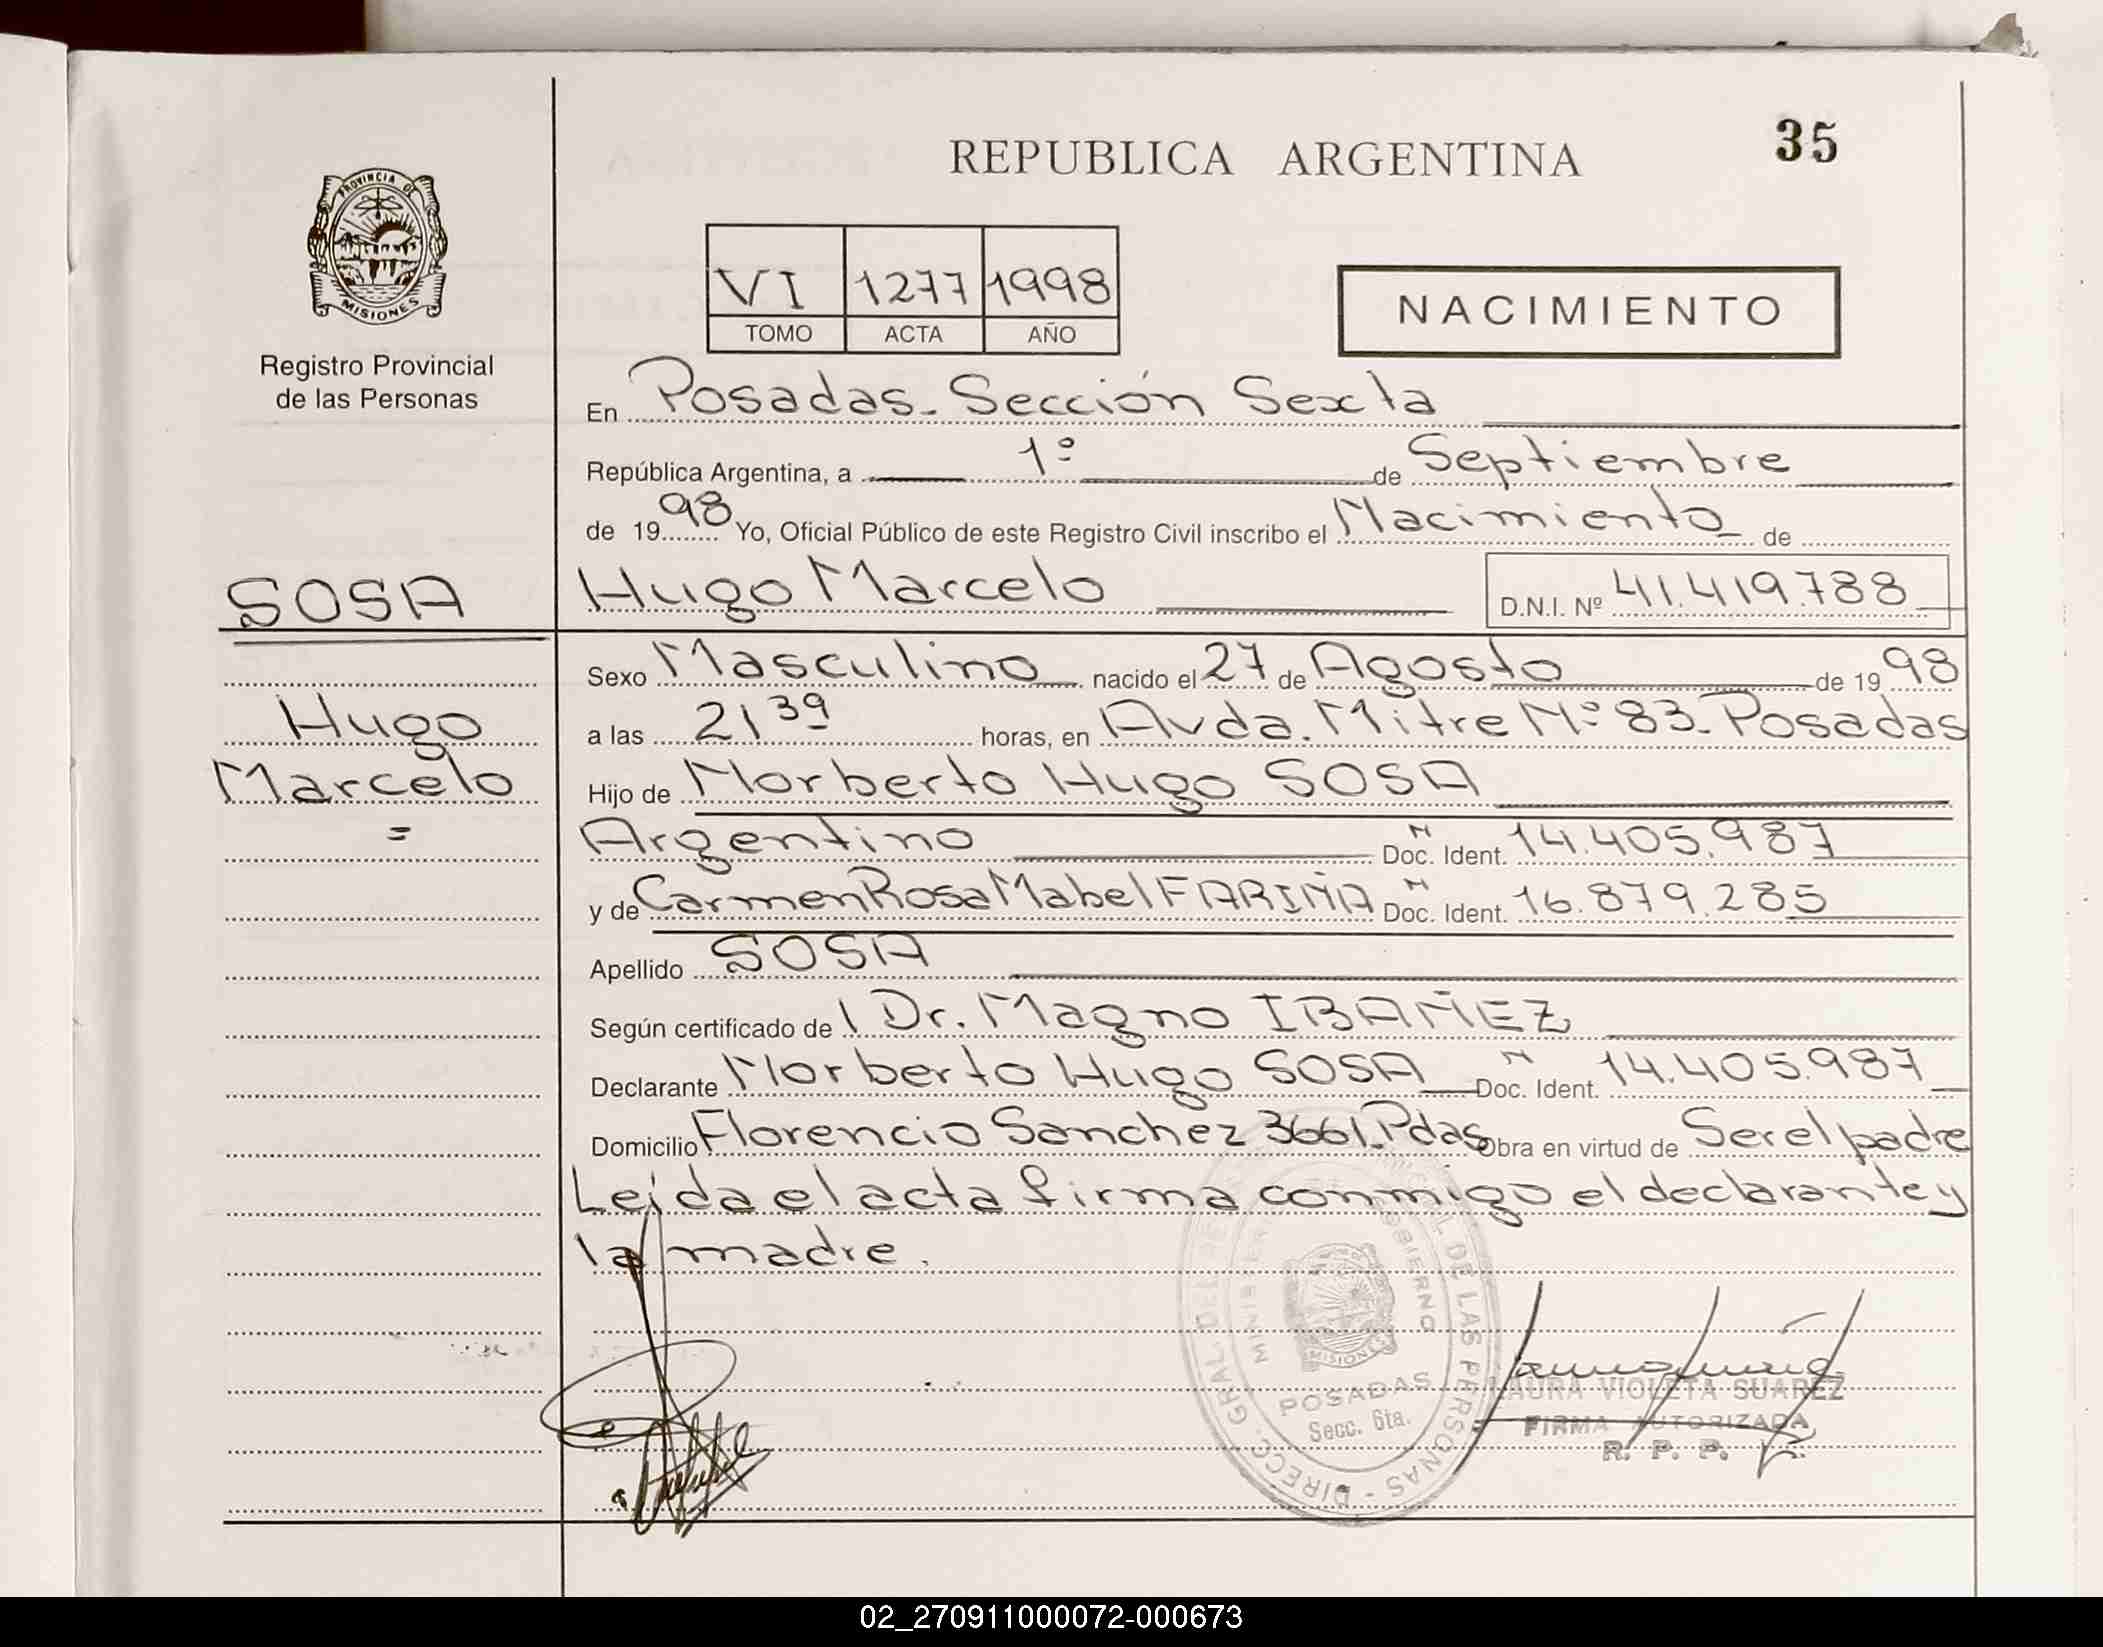 REPUBLICA ARGENTINA
35
PROVINCIA DE
MISIONES
Registro Provincial
de las Personas
VI 1277 1998
TOMO ACTA AÑO
NACIMIENTO
En Posadas. Sección Sexta
República Argentina, a 1º de Septiembre
de 1998 Yo, Oficial Público de este Registro Civil inscribo el Nacimiento de
SOSA Hugo Marcelo D.N.I. Nº 41.419.788
Sexo Masculino nacido el 27 de Agosto de 1998
Hugo a las 21 39 horas, en Avda. Mitre Nº 83. Posadas
Marcelo Hijo de Norberto Hugo SOSA
= Argentino Doc. Ident. N 14.405.987
y de Carmen Rosa Mabel FARIÑA Doc. Ident. N 16.879.285
Apellido SOSA
Según certificado de l Dr. Magno IBAÑEZ
Declarante Norberto Hugo SOSA Doc. Ident. N 14.405.987
Domicilio Florencio Sanchez 3661. Pdas Obra en virtud de Ser el padre
Leída el acta firma conmigo el declarante y
la madre.
MISIONES
POSADAS
Secc. 6ta.
LAURA VIOLETA SUAREZ
FIRMA AUTORIZADA
R. P. P.
02_270911000072-000673